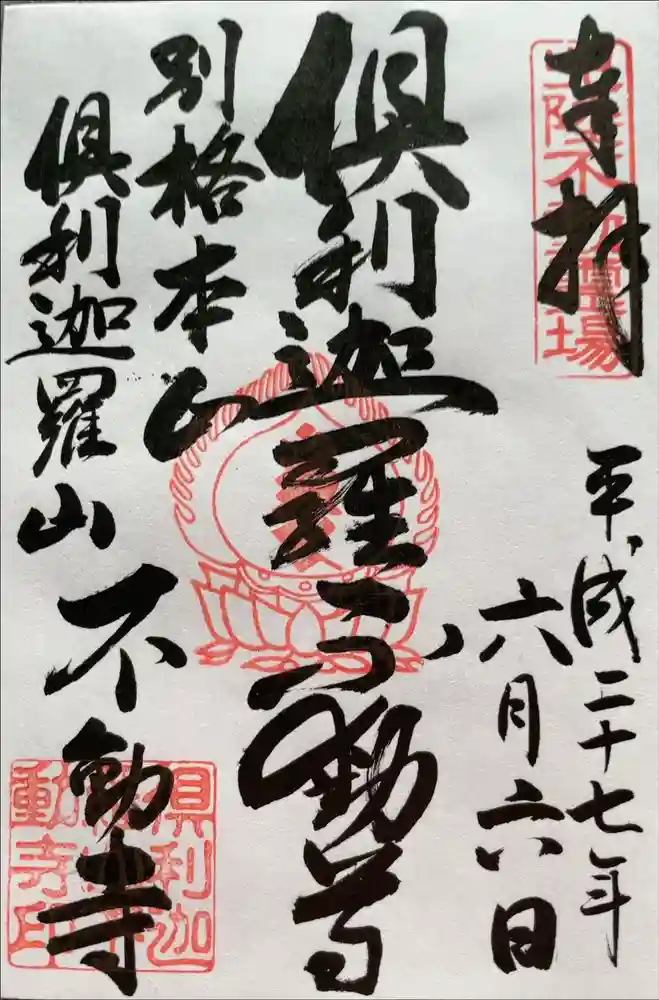 奉拝
陸不動霊場
平成二十七年
六月六日
倶利迦羅不動尊
別格本山
倶利迦羅山不動寺
倶利迦
動寺印